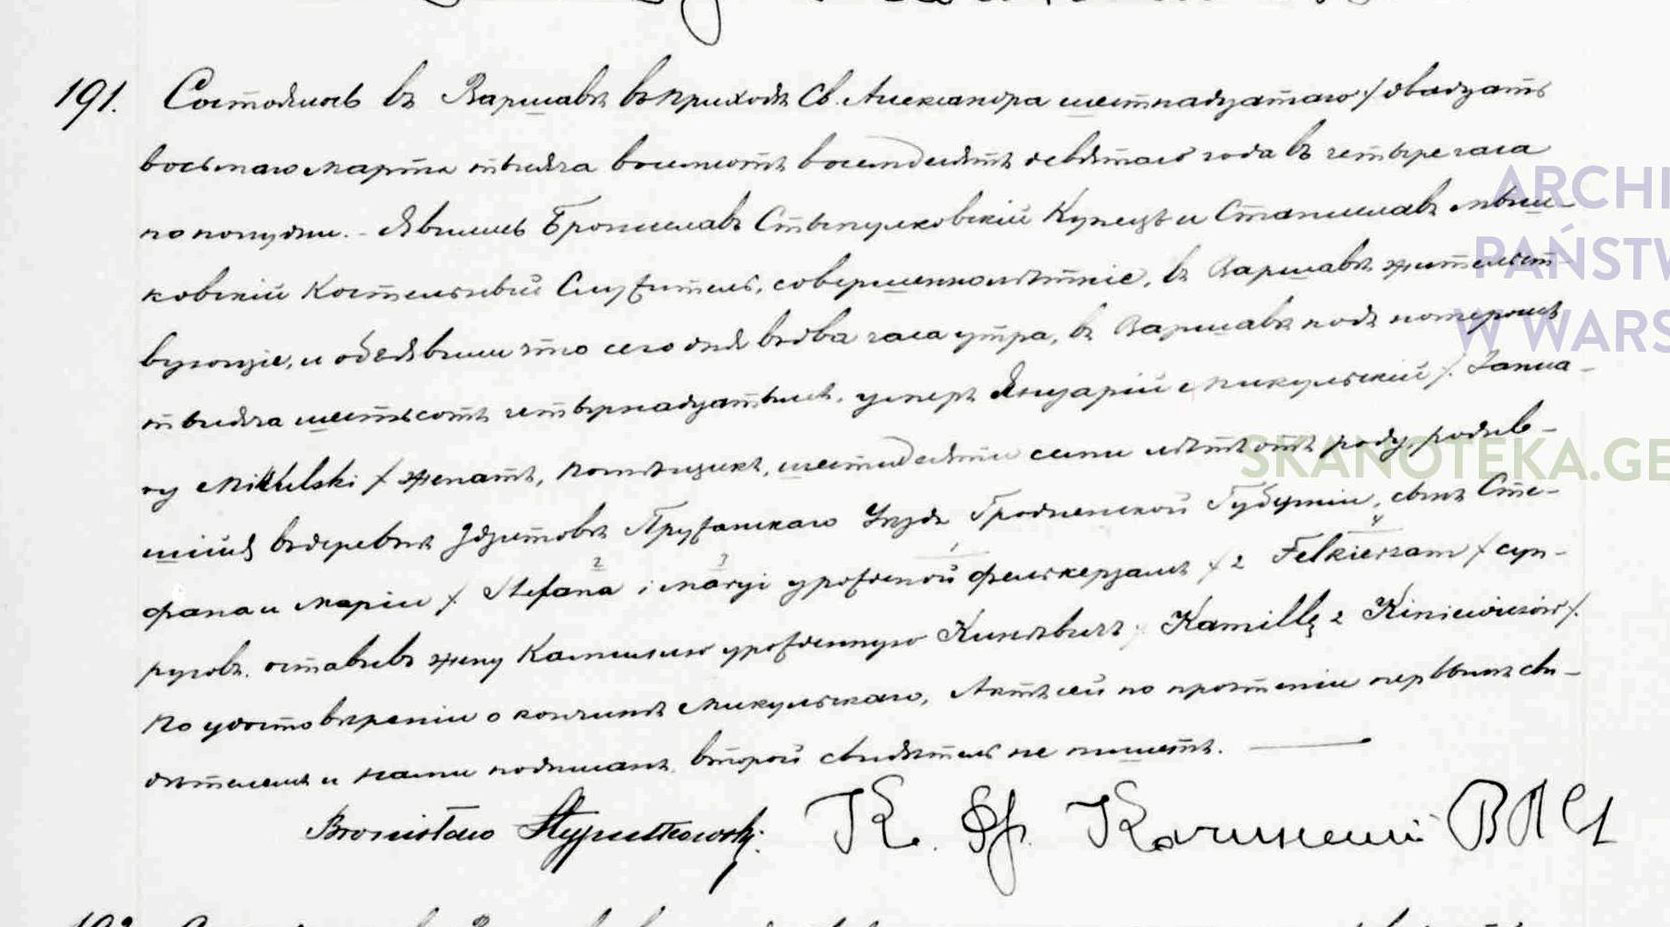 191. Состоялось въ Варшавѣ въ приходѣ Св. Александра шестнадцатаго / двадцать
восьмаго марта тысяча восемсотъ восемдесятъ девятаго года въ четыре часа
по полудни. - Явились Брониславъ Стыпулковскій Купецъ и Станиславъ Мыш-
ковскій Костельный Служитель, совершеннолѣтніе, въ Варшавѣ жительст-
вующіе, и объявили что сего дня въ два часа утра, въ Варшавѣ подъ номеромъ
тысяча шестьсотъ четырнадцатымъ, умеръ Януарій Микульскій /. Janua-
ry Mikulski / женатъ, помѣщикъ, шестидесяти семи лѣтъ отъ роду, родив-
шійся въ деревнѣ Здзитовѣ Пружанскаго Уѣзда Гродненской Губерніи, сынъ Сте-
фана и Маріи /. Stefana i Maryi урожденной Фелькерзамъ / z Felkierzam / суп-
руговъ. оставивъ жену Камиллю урожденную Киневичъ / Kamillę z Kiniewiczów /.
По удостовѣреніи о кончинѣ Микульскаго, Актъ сей по прочтеніи первымъ сви-
дѣтелемъ и нами подписанъ. второй свидѣтель не пишетъ.
Bronisław Stypułkowski. К. Фр.
192.
ARCHI
PAŃSTW
W WARS
SKANOTEKA.GE